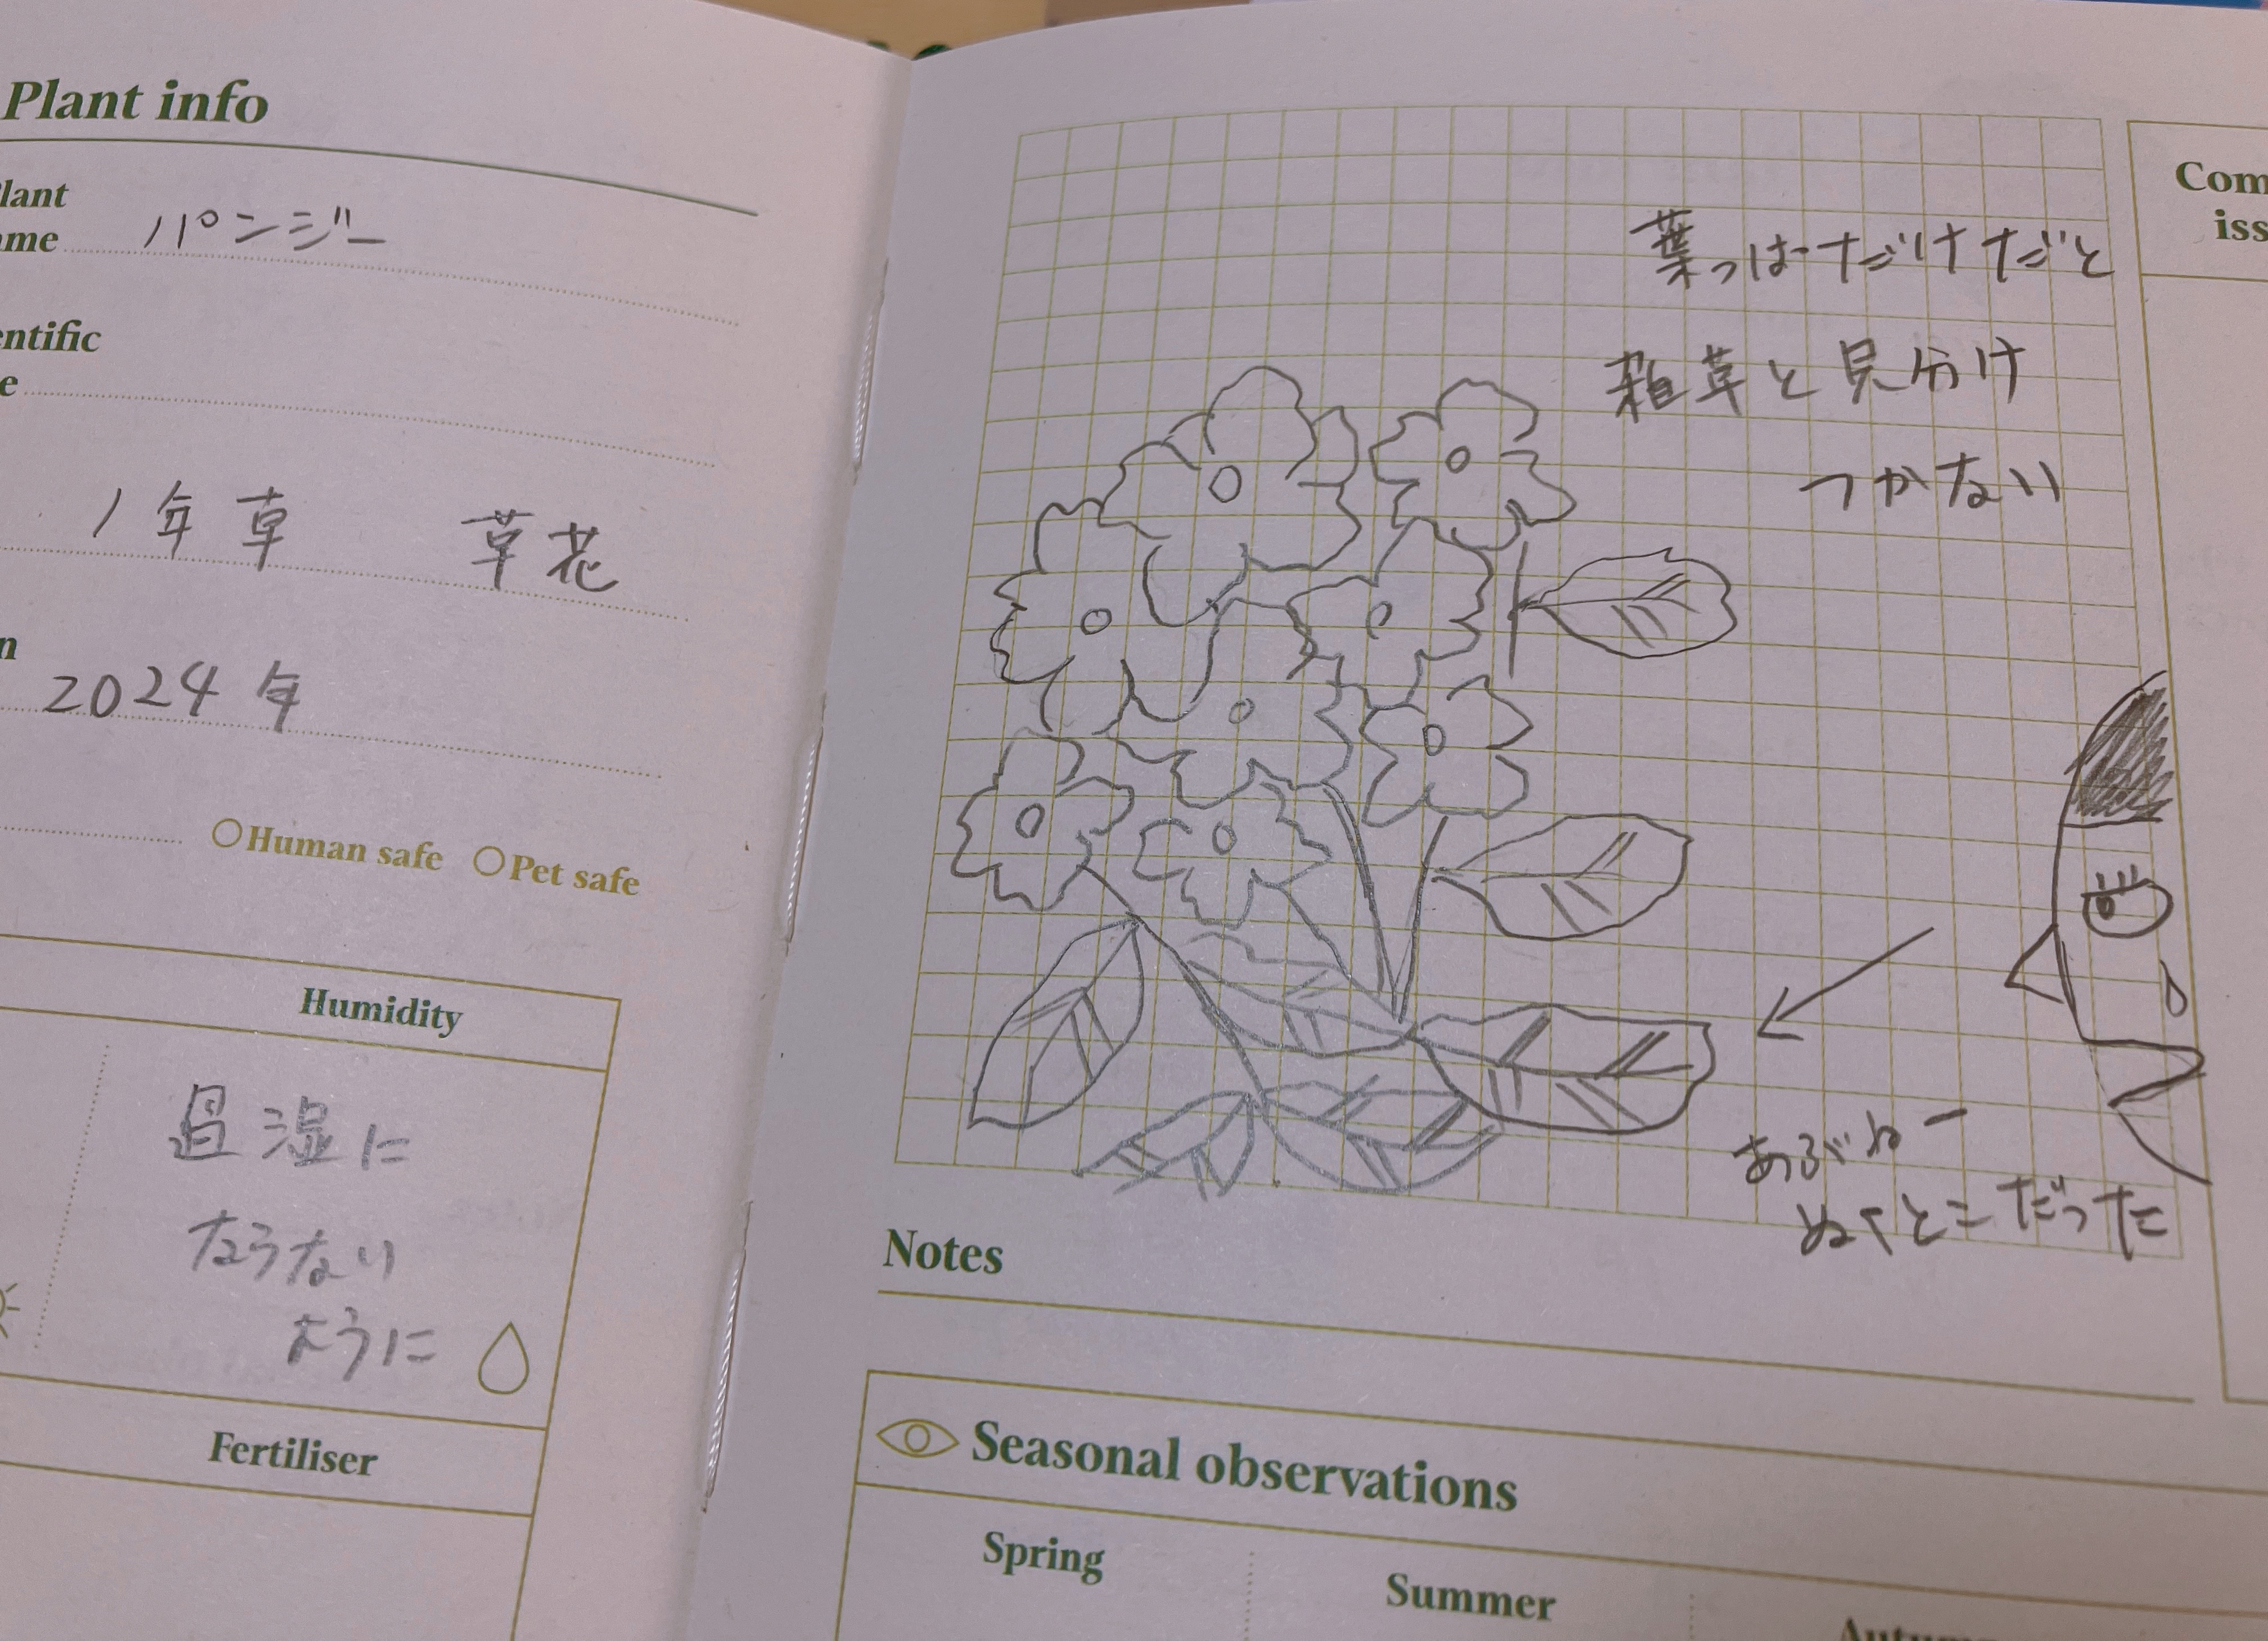 Plant info
lant
ame パンジー
entific
e
1年草 草花
n
2024年
Human safe Pet safe
Humidity
過湿に
ならない
ように
Fertiliser
葉っぱだけだと
雑草と見分け
つかない
あぶねー
ぬくとこだった
Notes
Seasonal observations
Spring
Summer
Com
iss